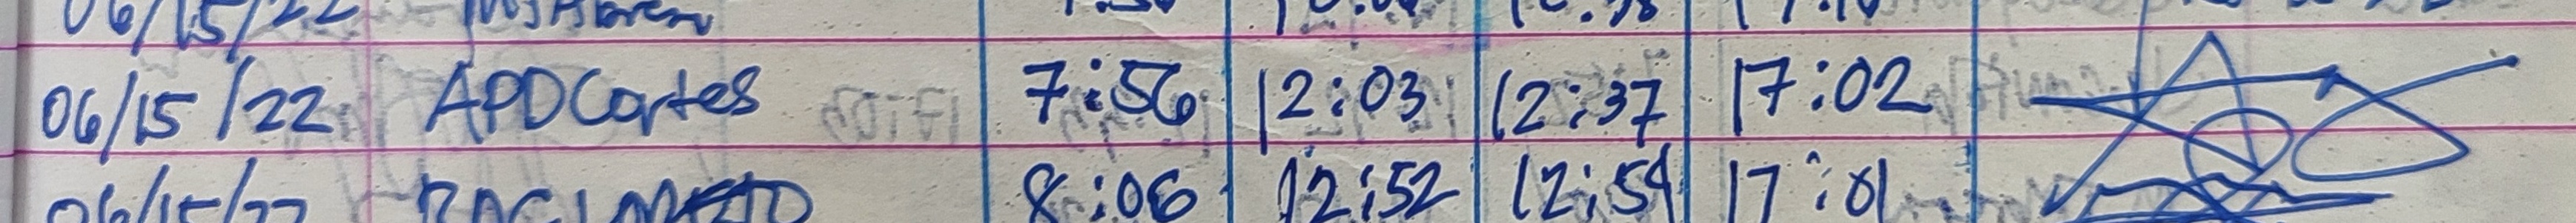 06/15/22
06/15/22 APDCortes 7:56 12:03 12:37 17:02
06/15/22 8:06 12:52 12:54 17:01